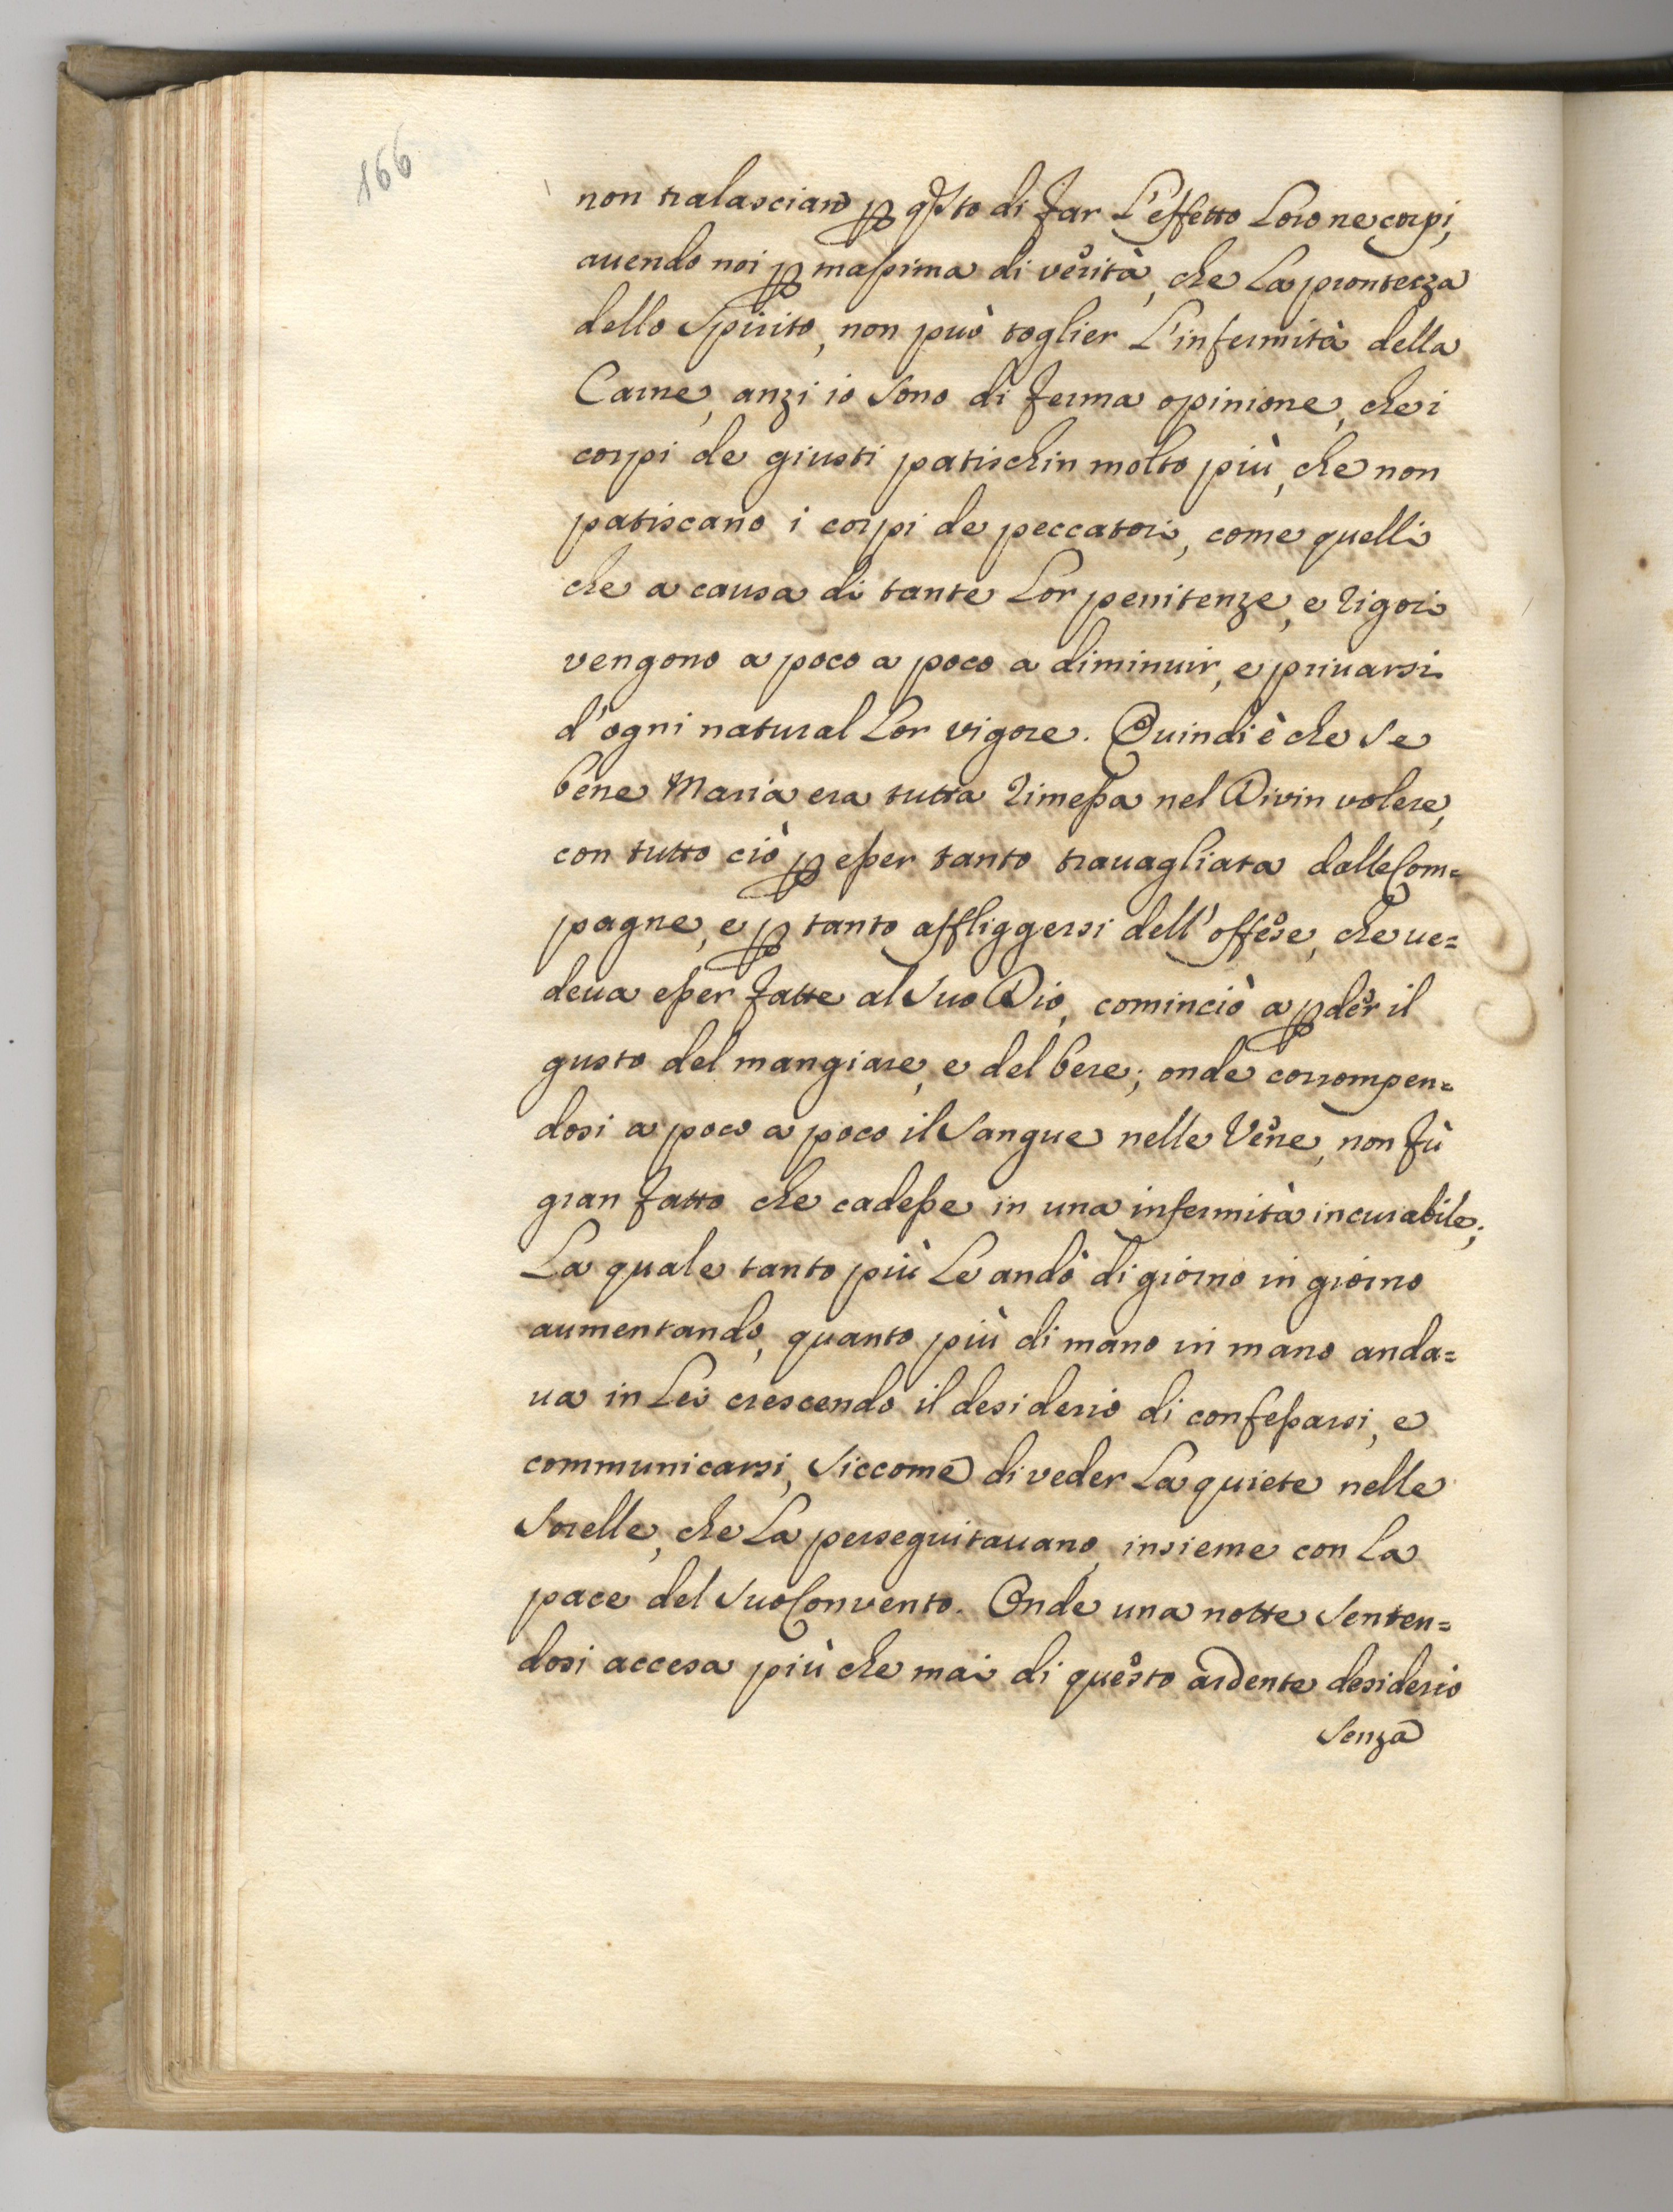 166
non tralascian ꝑ qsto di far L'effetto Loro ne corpi,
auendo noi ꝑ massima di verità, che La prontezza
dello Spirito, non può toglier L'infermità della
Carne, anzi io Sono di ferma opinione, che i
corpi de giusti patischin molto più, che non
patiscano i corpi de peccatori, come quelli
che a causa di tante Lor penitenze, e rigori
vengono a poco a poco a diminuir, e priuarsi
d'ogni natural Lor vigore. Quindi è che Se
bene Maria era tutta rimessa nel Divin volere,
con tutto ciò ꝑ esser tanto trauagliata dalle Com=
pagne, e ꝑ tanto affliggersi dell'offese, che ue=
deua esser fatte al Suo Dio, cominciò a ꝑder il
gusto del mangiare, e del bere; onde corrompen=
dosi a poco a poco il Sangue nelle Vene, non fù
gran fatto che cadesse in una infermità incurabile;
La quale tanto più Le andò di giorno in giorno
aumentando, quanto più di mano in mano anda=
ua in Lei crescendo il desiderio di confessarsi, e
communicarsi, Siccome di veder La quiete nelle
Sorelle, che La perseguitauano, insieme con La
pace del Suo Convento. Onde una notte Senten=
dosi accesa più che mai di questo ardente desiderio
Senza